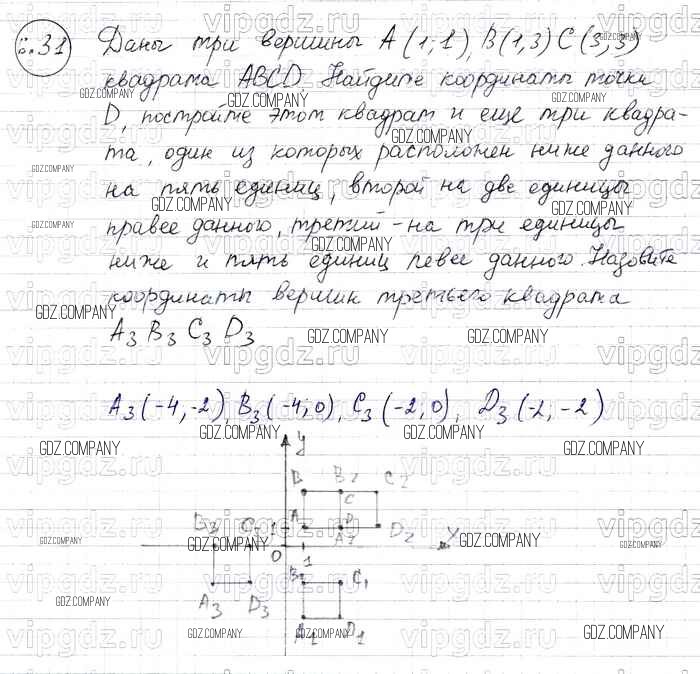 п.31 Даны три вершины A(1;1), B(1,3) C(3,3)
квадрата ABCD. Найдите координаты точки
D, постройте этот квадрат и еще три квадра-
та, один из которых расположен ниже данного
на пять единиц, второй на две единицы
правее данного, третий - на три единицы
ниже и пять единиц левее данного. Назовите
координаты вершин третьего квадрата
A3 B3 C3 D3
A3(-4,-2), B3(-4;0), C3(-2,0), D3(-2,-2)
y
B B2 C2
C
B3 C3 1 A D D2 X
A2
0 1
B1 C1
A3 D3
A1 D1
GDZ.COMPANY
vipgdz.ru